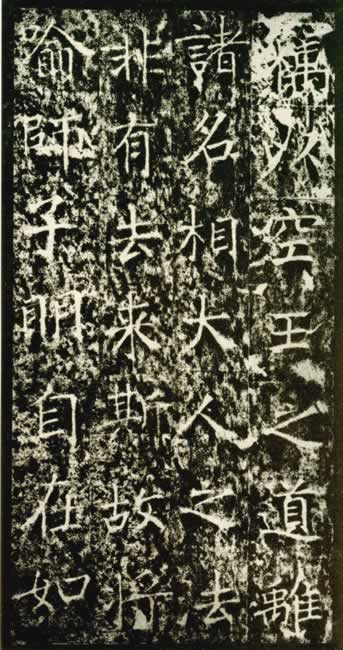 以空王之道離
諸名相大人之去
非有去来斯故将
喻師子明自在如